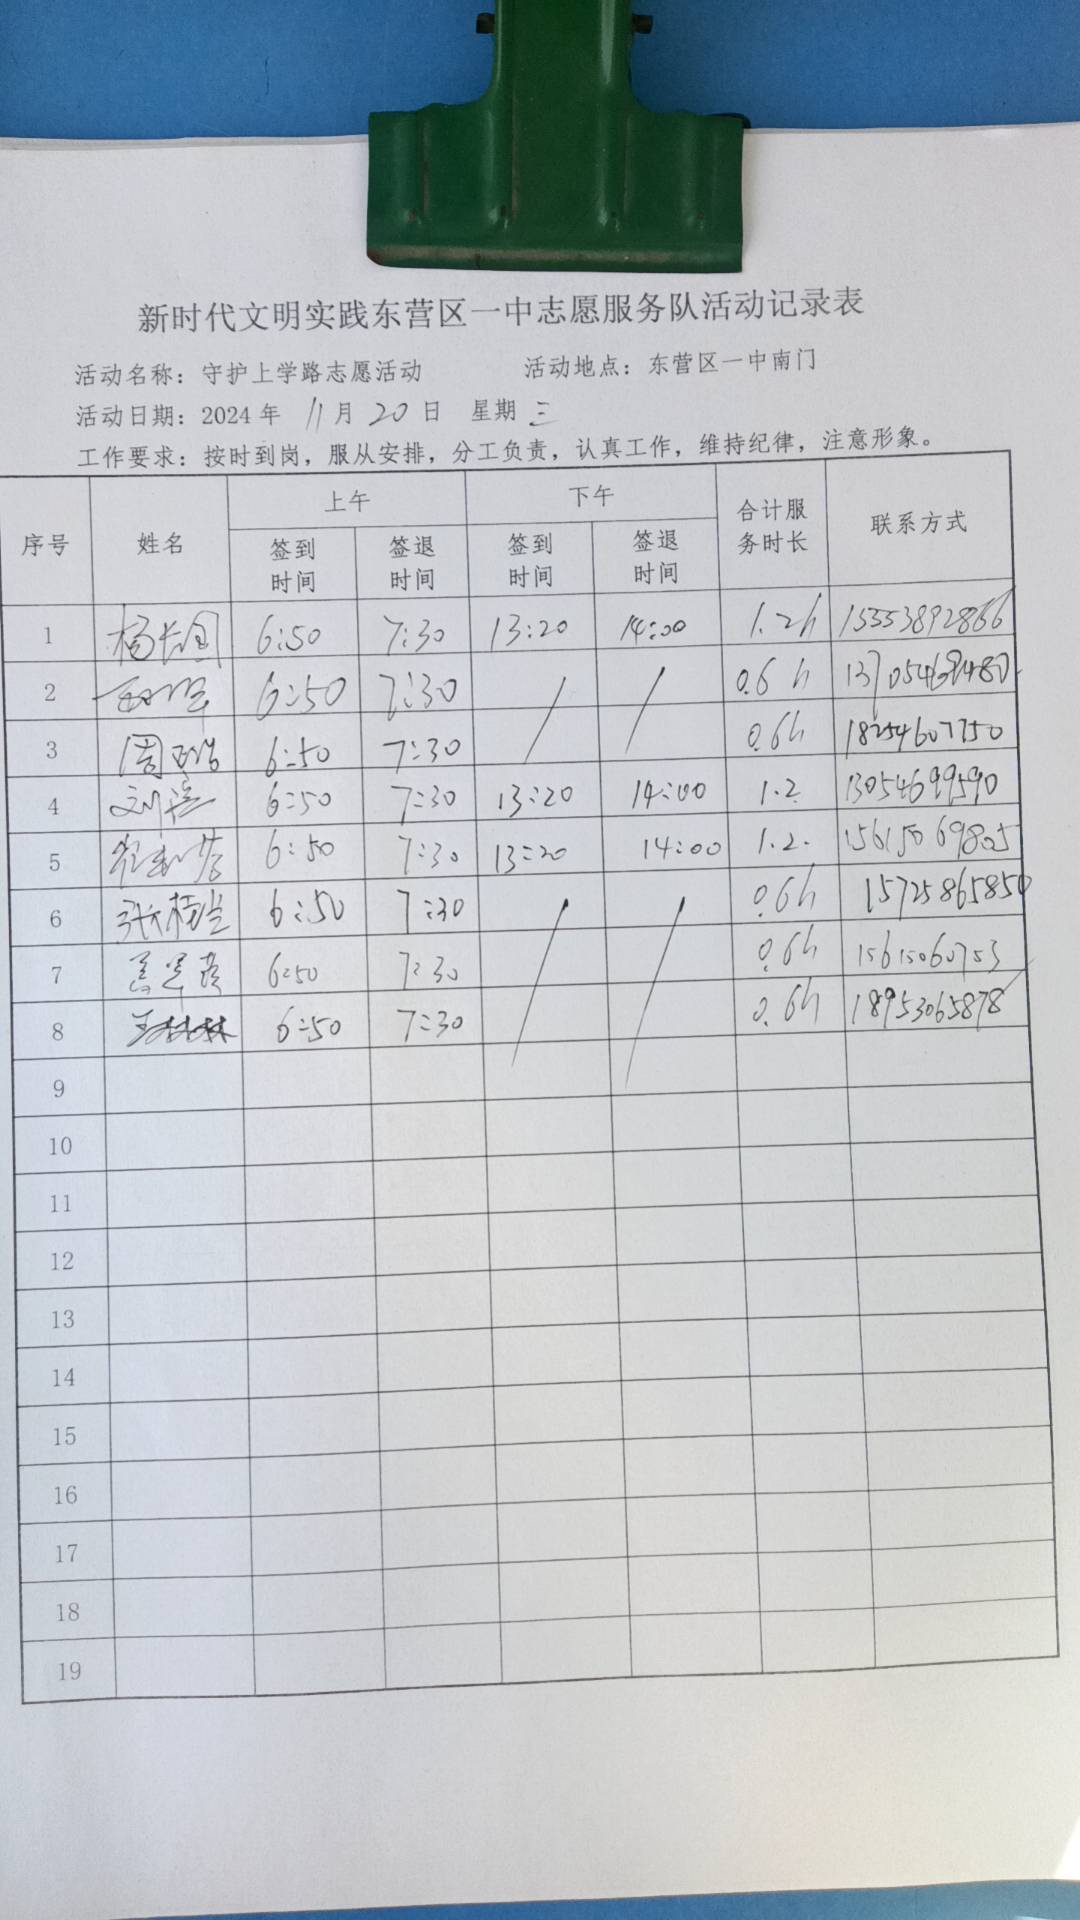 新时代文明实践东营区一中志愿服务队活动记录表
活动名称：守护上学路志愿活动 活动地点：东营区一中南门
活动日期：2024年 11月 20日 星期 三
工作要求：按时到岗，服从安排，分工负责，认真工作，维持纪律，注意形象。
序号 姓名 上午 下午 合计服务时长 联系方式
签到时间 签退时间 签到时间 签退时间
1 杨长国 6:50 7:30 13:20 14:00 1.2h 15553892866
2 6:50 7:30 / / 0.6h
3 6:50 7:30 0.6h 18254607750
4 6:50 7:30 13:20 14:00 1.2 13054699590
5 6:50 7:30 13:20 14:00 1.2. 15615069805
6 6:50 7:30 / / 0.6h 15725865850
7 6:50 7:30 0.6h 15615060753
8 6:50 7:30 0.6h 18953065878
9
10
11
12
13
14
15
16
17
18
19